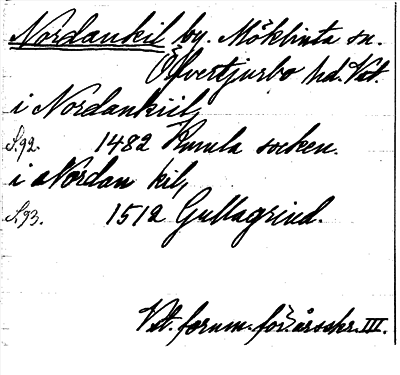 Nordankil by. Möklinta sn.
Övertjurbo hd. Vst.
i Nordankiil,
S.92. 1482 Kumla socken.
i aNordan kil,
S.93. 1512 Gullagrind.
Vst. fornm.-för:s årsskr. III.